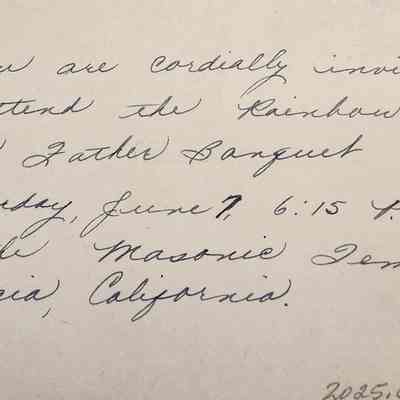 are cordially invi
ttend the Rainbow
Father Banquet
day, June 7, 6:15
Masonic Tem
cia, California.
2025.